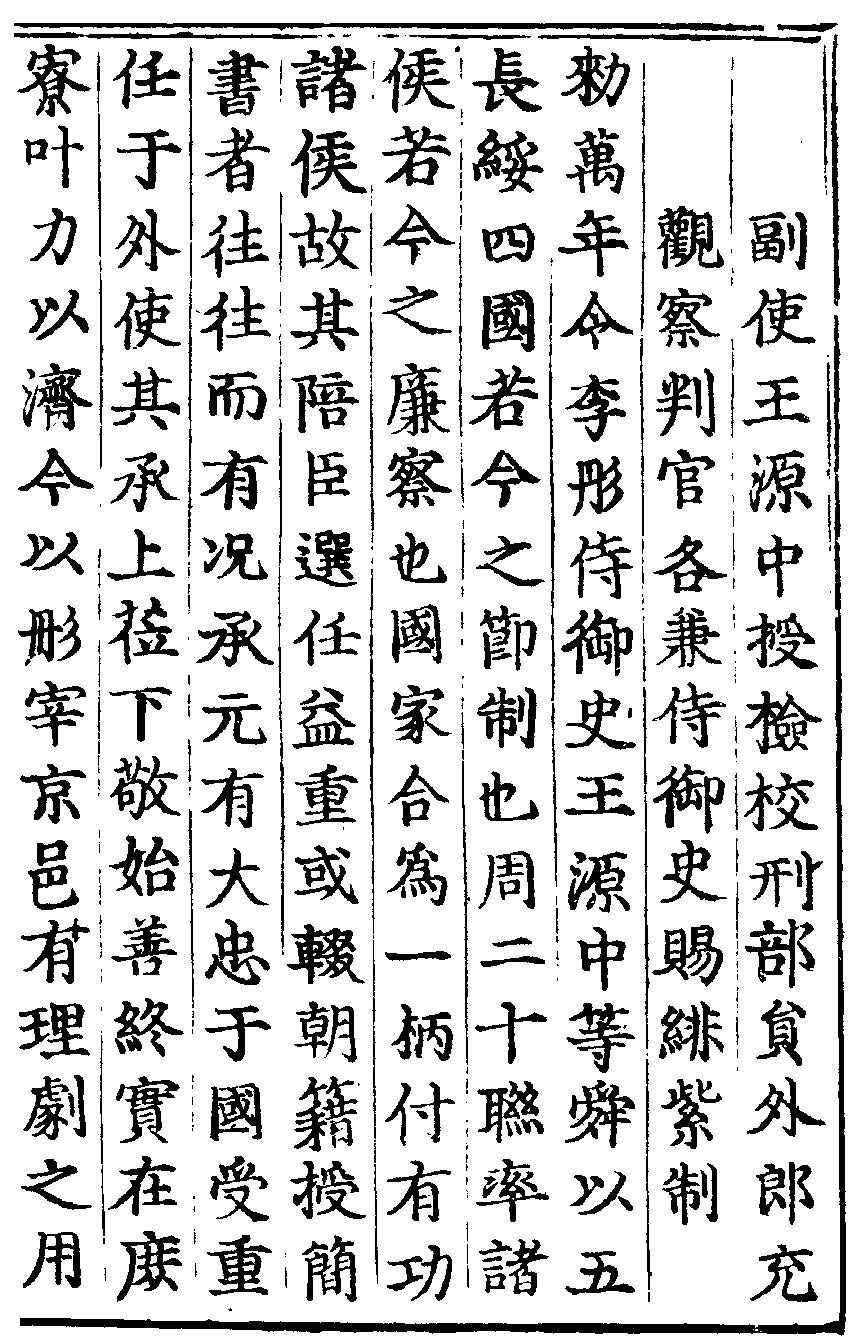 副使王源中授檢校刑部貟外郎充
觀察判官各兼侍御史賜緋紫制
勑萬年令李彤侍御史王源中等舜以五
長綏四國若今之節制也周二十聯率諸
侯若今之廉察也國家合爲一柄付有功
諸侯故其陪臣選任益重或輟朝籍授簡
書者往往而有况承元有大忠于國受重
任于外使其承上莅下敬始善終實在庶
寮叶力以濟今以彤宰京邑有理劇之用